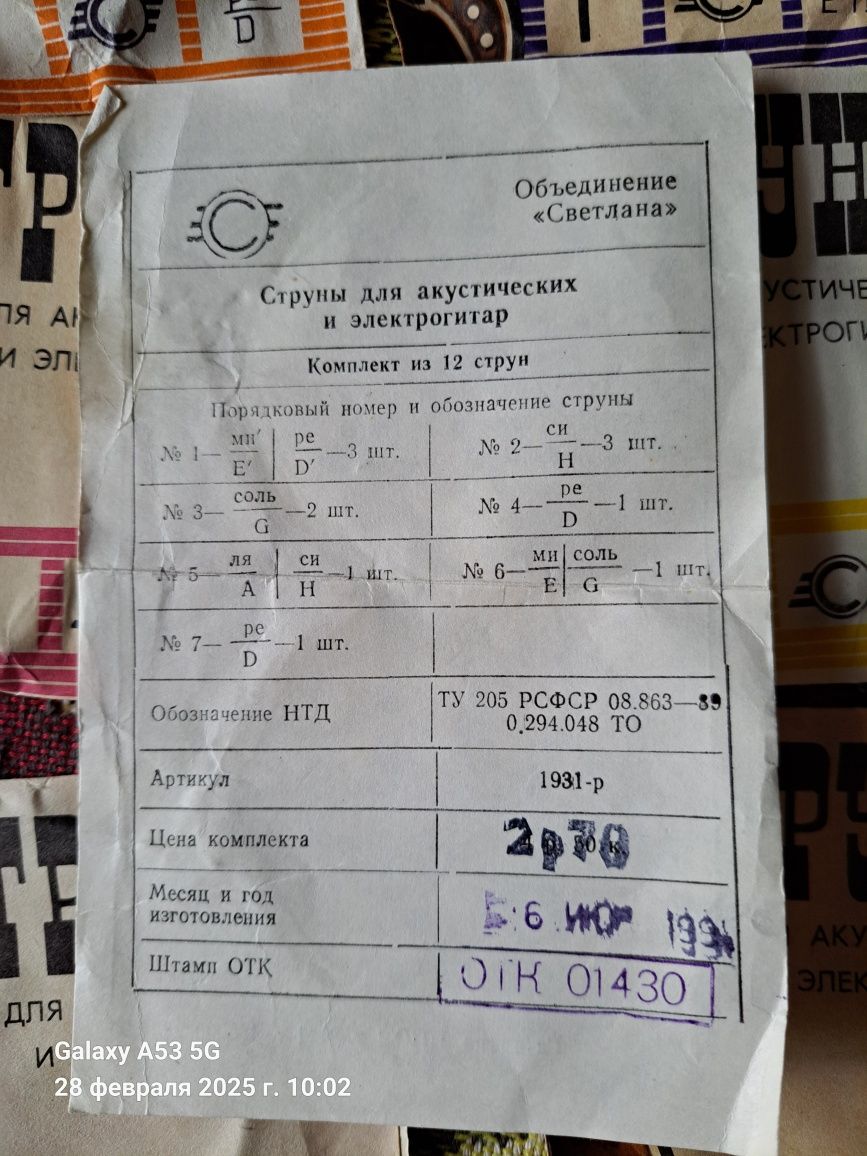 Объединение
«Светлана»
Струны для акустических
и электрогитар
Комплект из 12 струн
Порядковый номер и обозначение струны
№ 1— ми′/E′ | ре/D′ —3 шт.
№ 2— си/H —3 шт.
№ 3— соль/G —2 шт.
№ 4— ре/D —1 шт.
№ 5— ля/A | си/H —1 шт.
№ 6— ми/E | соль/G —1 шт.
№ 7— ре/D —1 шт.
Обозначение НТД
ТУ 205 РСФСР 08.863—89
0.294.048 ТО
Артикул
1931-р
Цена комплекта
2р70
Месяц и год
изготовления
6 199
Штамп ОТК
ОТК 01430
D
ТР
ЛЯ АК
И ЭЛ
УН
УСТИЧЕ
КТРОГИ
ДЛЯ
И
АКУ
ЭЛЕК
Galaxy A53 5G
28 февраля 2025 г. 10:02